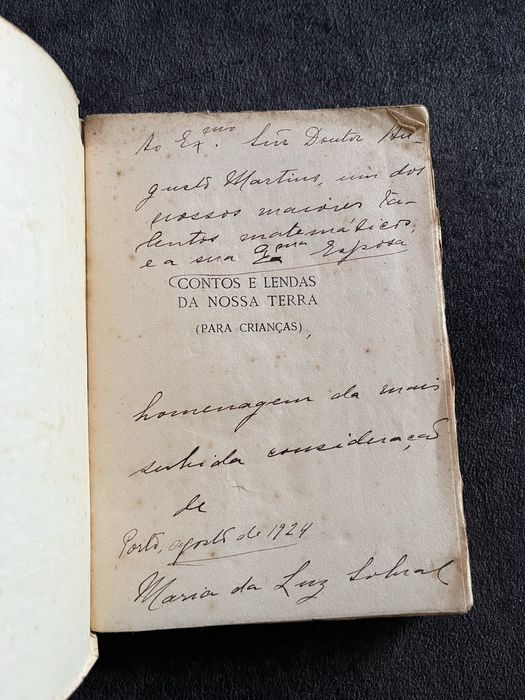 Ao Ex.mo Snr Doutor Au-
gusto Martins, um dos
nossos maiores ta-
lentos matemáticos,
e a sua Ex.ma Esposa
CONTOS E LENDAS
DA NOSSA TERRA
(PARA CRIANÇAS),
homenagem da mais
subida consideração
de
Porto, agosto de 1924
Maria da Luz Sobral